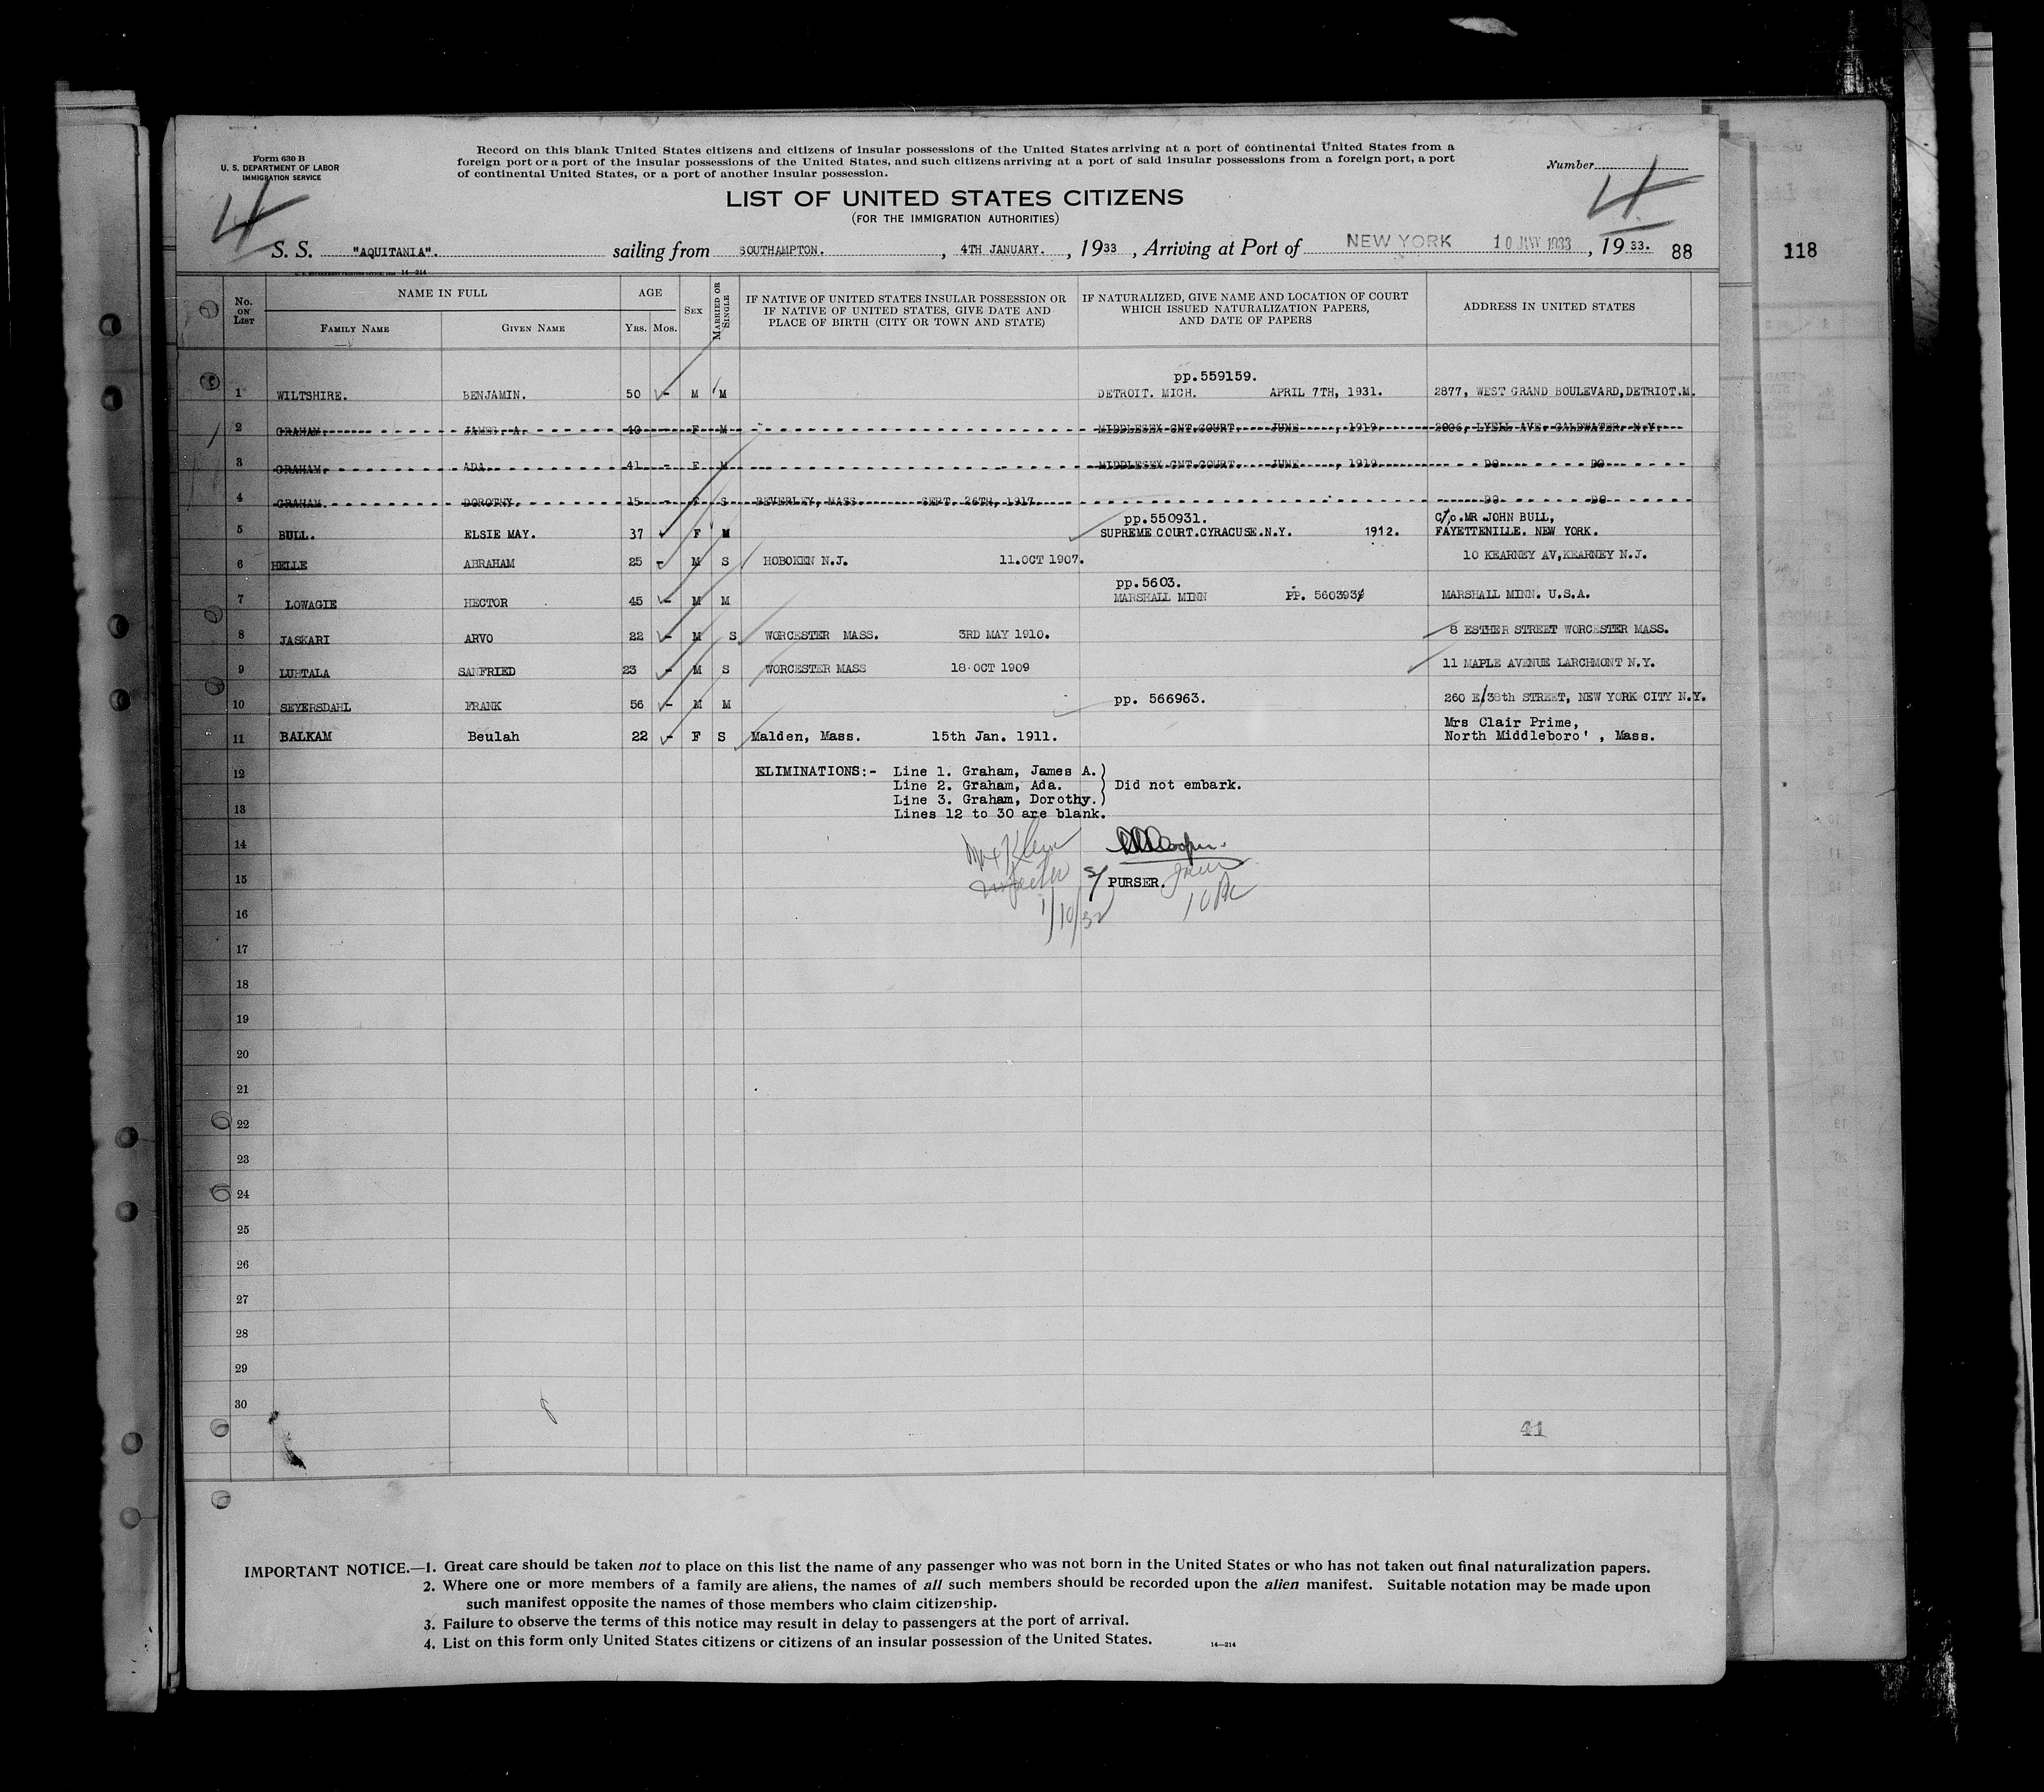 Form 630 B
U. S. DEPARTMENT OF LABOR
IMMIGRATION SERVICE
Record on this blank United States citizens and citizens of insular possessions of the United States arriving at a port of continental United States from a
foreign port or a port of the insular possessions of the United States, and such citizens arriving at a port of said insular possessions from a foreign port, a port
of continental United States, or a port of another insular possession.
Number
4
4
LIST OF UNITED STATES CITIZENS
(FOR THE IMMIGRATION AUTHORITIES)
S. S. "AQUITANIA". sailing from SOUTHAMPTON. , 4TH JANUARY. , 1933 , Arriving at Port of NEW YORK 10 JAN 1933 , 19 33. 88
118
14—214
No. ON LIST
NAME IN FULL
FAMILY NAME GIVEN NAME
AGE
YRS. MOS.
SEX
MARRIED OR SINGLE
IF NATIVE OF UNITED STATES INSULAR POSSESSION OR
IF NATIVE OF UNITED STATES, GIVE DATE AND
PLACE OF BIRTH (CITY OR TOWN AND STATE)
IF NATURALIZED, GIVE NAME AND LOCATION OF COURT
WHICH ISSUED NATURALIZATION PAPERS,
AND DATE OF PAPERS
ADDRESS IN UNITED STATES
pp.559159.
1 WILTSHIRE. BENJAMIN. 50 - M M DETROIT. MICH. APRIL 7TH, 1931. 2877, WEST GRAND BOULEVARD,DETRIOT.M.
2 GRAHAM. JAMES. A. 40 - F M MIDDLESEX CNT.COURT. JUNE , 1919. 2906, LYELL AVE. CALDWATER. N.Y.
3 GRAHAM. ADA. 41 - F M MIDDLESEX CNT.COURT. JUNE , 1919. DO DO
4 GRAHAM. DOROTHY. 15 - F S BEVERLEY, MASS. SEPT. 26TH, 1917. DO DO
pp.550931. C/o.MR JOHN BULL,
5 BULL. ELSIE MAY. 37 F M SUPREME COURT.CYRACUSE.N.Y. 1912. FAYETTENILLE. NEW YORK.
6 HELLE ABRAHAM 25 - M S HOBOKEN N.J. 11.OCT 1907. 10 KEARNEY AV,KEARNEY N.J.
pp.5603.
7 LOWAGIE HECTOR 45 - M M MARSHALL MINN PP. 560393 MARSHALL MINN. U.S.A.
8 JASKARI ARVO 22 - M S WORCESTER MASS. 3RD MAY 1910. 8 ESTHER STREET WORCESTER MASS.
9 LUHTALA SANFRIED 23 - M S WORCESTER MASS 18 OCT 1909 11 MAPLE AVENUE LARCHMONT N.Y.
10 SEYERSDAHL FRANK 56 - M M pp. 566963. 260 E/38th STREET, NEW YORK CITY N.Y.
Mrs Clair Prime,
11 BALKAM Beulah 22 - F S Malden, Mass. 15th Jan. 1911. North Middleboro' , Mass.
12 ELIMINATIONS:- Line 1. Graham, James A.)
Line 2. Graham, Ada. ) Did not embark.
13 Line 3. Graham, Dorothy.)
Lines 12 to 30 are blank.
14
15 PURSER.
16
17
18
19
20
21
22
23
24
25
26
27
28
29
30
41
IMPORTANT NOTICE.—1. Great care should be taken not to place on this list the name of any passenger who was not born in the United States or who has not taken out final naturalization papers.
2. Where one or more members of a family are aliens, the names of all such members should be recorded upon the alien manifest. Suitable notation may be made upon
such manifest opposite the names of those members who claim citizenship.
3. Failure to observe the terms of this notice may result in delay to passengers at the port of arrival.
4. List on this form only United States citizens or citizens of an insular possession of the United States. 14—214